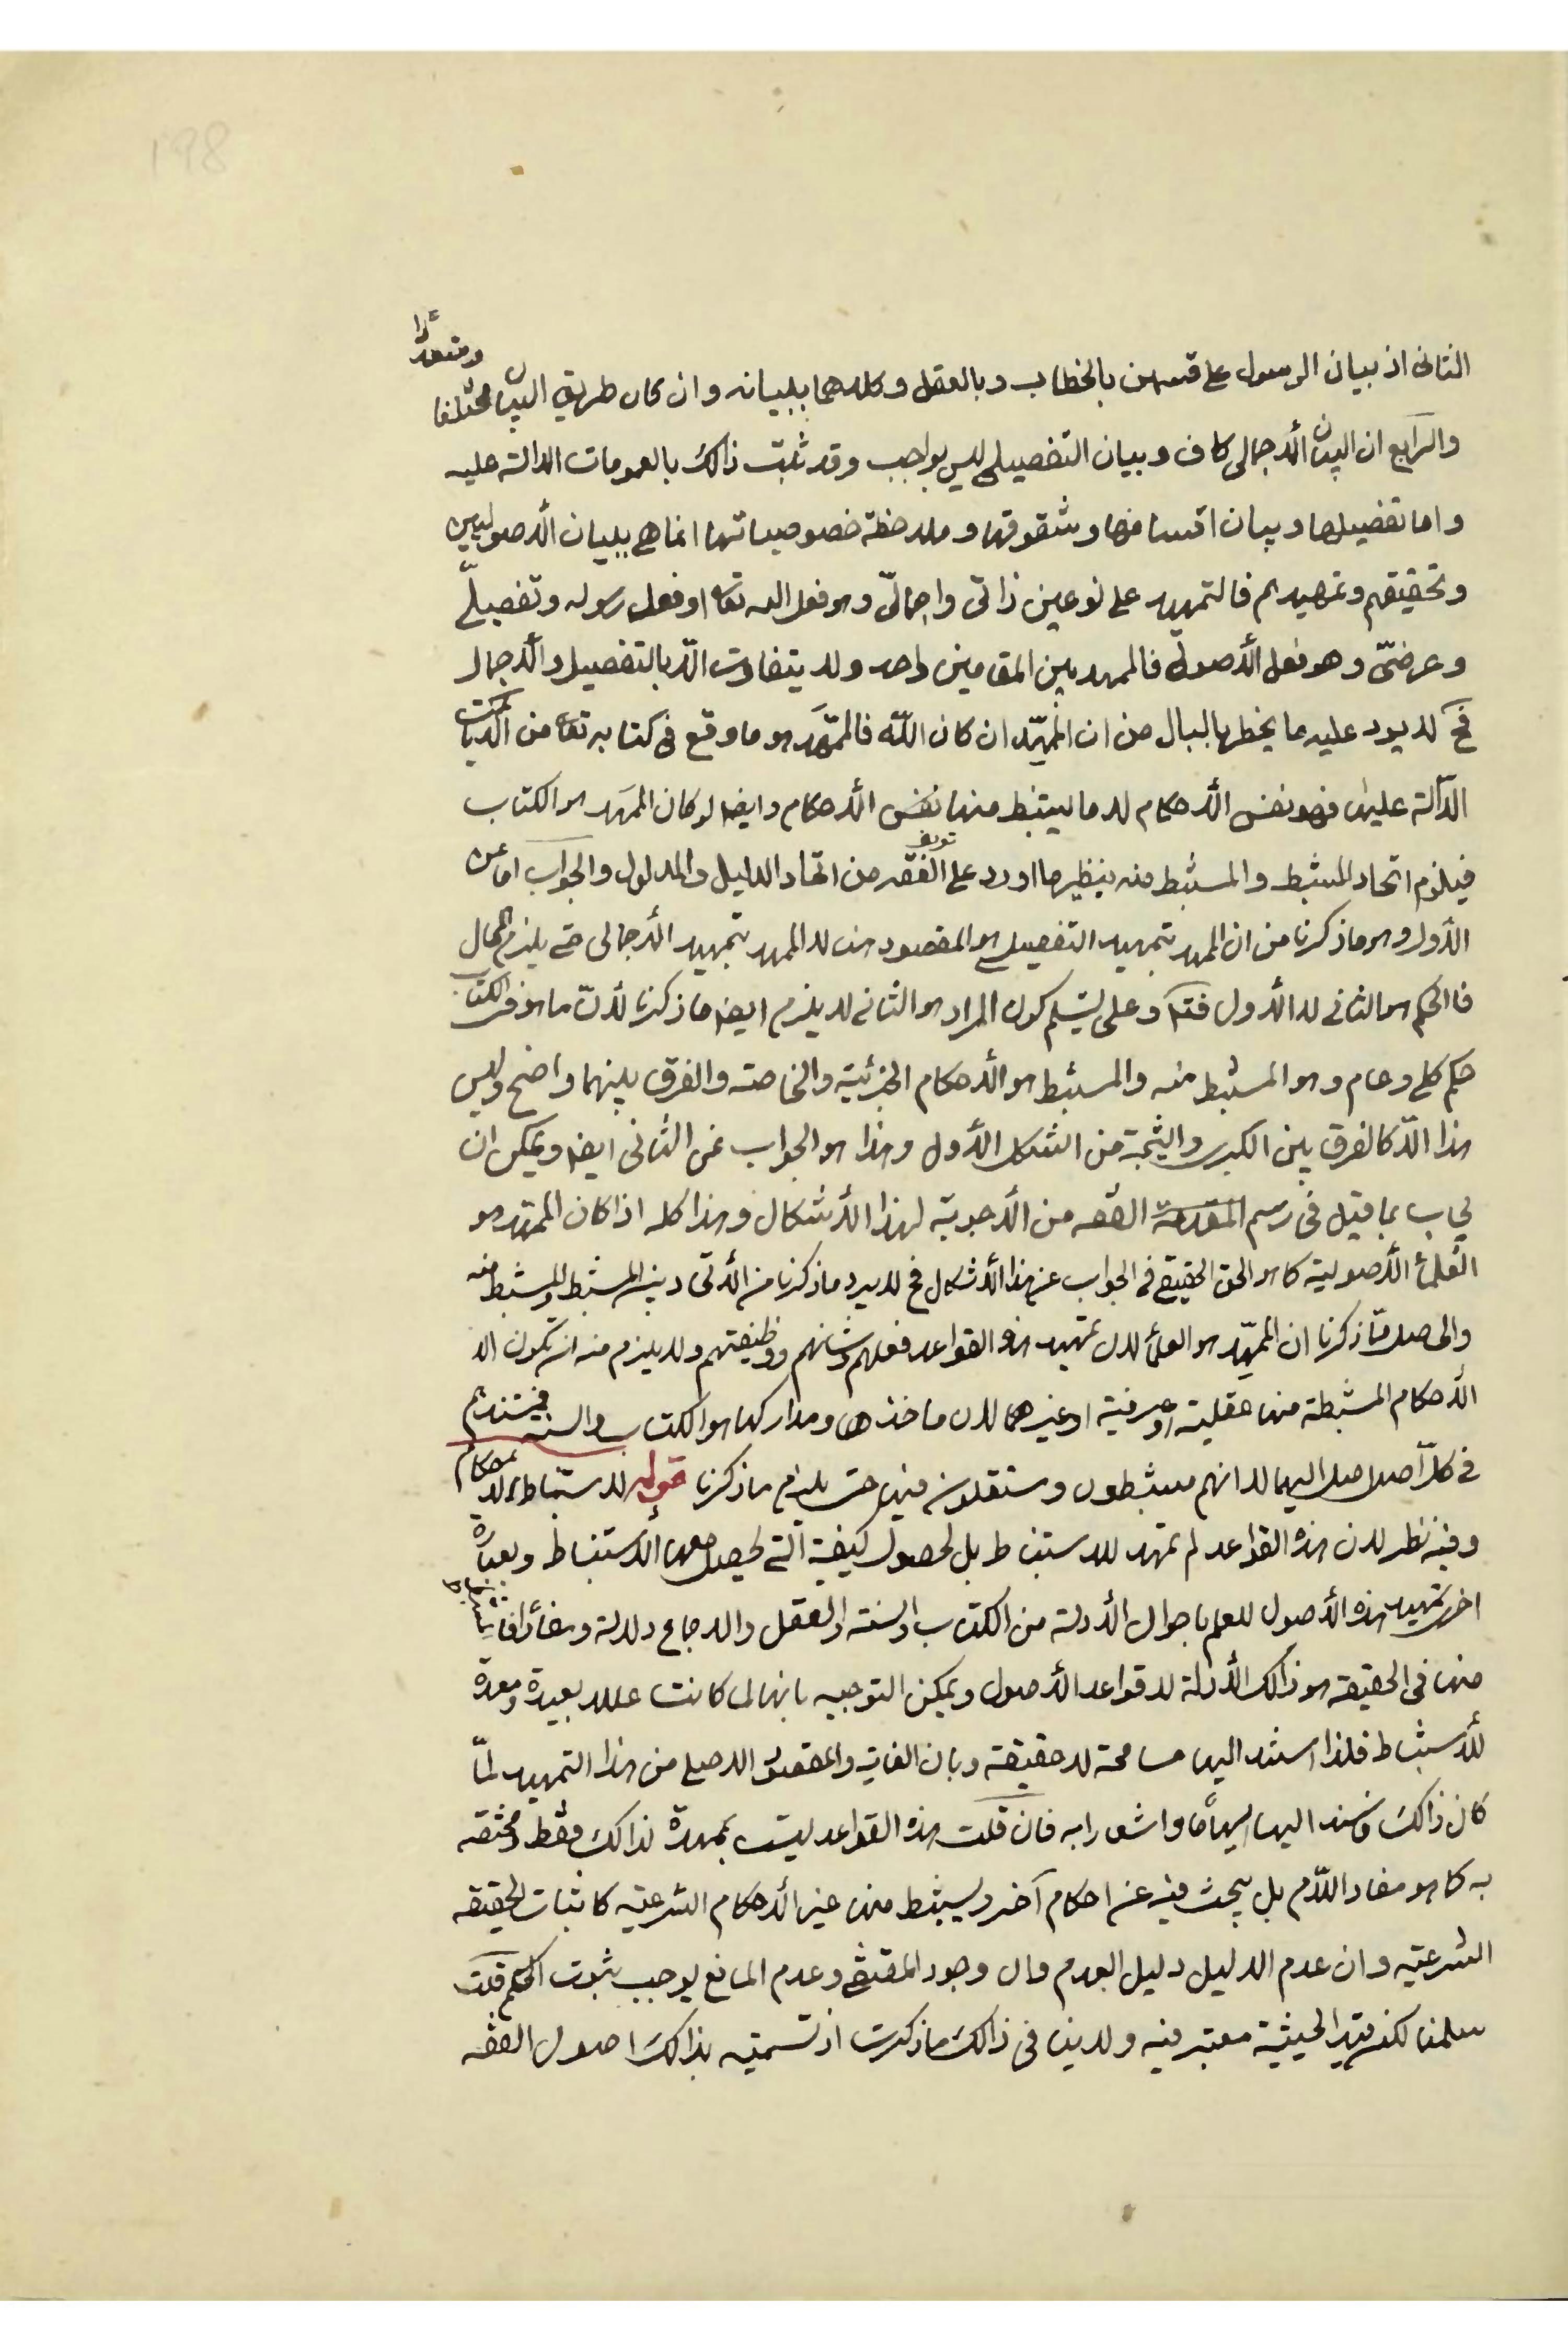 198
الثانى اذ بيان الرسول على قسمين بالخطاب وبالعقل وكلاهما ببيانه وان كان طريق البيان مختلفا ومتعددا
والرابع ان البيان الاجمالى كاف وبيان التفصيلى ليس بواجب وقد ثبت ذالك بالعمومات الدالة عليه
واما تفصيلها وبيان اقسامها وشقوقها وملاحظة خصوصياتها انما هى ببيان الاصوليين
وتحقيقهم وتمهيدهم فالتمهيد على نوعين ذاتى واجمالىّ وهو فعل الله تعا او فعل رسوله وتفصيلىّ
وعرضىّ وهو فعل الاصولى فالممهد بين المقامين واحد ولا يتفاوت الّا بالتفصيل والاجمال
فح لا يرد عليه ما يخطر بالبال من ان الممهّد ان كان اللّه فالممهَّد هو ما وقع فى كتابه تعا من الايات
الدّالة عليها فهو نفس الاحكام لا ما يستنبط منها نفس الاحكام وايضا لو كان الممهد هو الكتاب
فيلزم اتحاد المستنبط والمستنبط منه بنظير ما اورد على تعريف الفقه من اتحاد الدليل والمدلول والجواب اما عن
الاول وهو ما ذكرنا من ان الممهد بتمهيد التفصيلى هو المقصود هنا لا الممهد بتمهيد الاجمالى حتى يلزم المحال
فالحكم هو الثانى لا الاول فتم وعلى تسليم كون المراد هو الثانى لا يلزم ايضا ما ذكرنا لانّ ما هو فى الكتاب
حكم كلى وعام وهو المستنبط منه والمستنبط هو الاحكام الجزئية والخاصة والفرق بينهما واضح وليس
هذا الّا كالفرق بين الكبرى والنتيجة من الشكل الاول وهذا هو الجواب عن الثانى ايضا ويمكن ان
يجاب بما قيل فى رسم الفقه من الاجوبة لهذا الاشكال وهذا كله اذا كان الممهد هو
العلماء الاصولية كما هو الحق الحقيق فى الجواب عن هذا الاشكال فح لا يرد ما ذكرنا من الاتحاد بين المستنبط والمستنبط منه
والحاصل ممّا ذكرنا ان الممهّد هو العلماء لان تمهيد هذه القواعد فعلهم وشانهم ووظيفتهم ولا يلزم منه ان يكون الا
الاحكام المستنبطة منها عقلية او عرفية او غيرهما لان ماخذها ومداركها هو الكتاب والسنة فيستندهم
فى كلّ اصل اصل اليهما لا انهم مستنبطون ومستقلون فيها حتى يلزم ما ذكرنا قوله لاستنباط الاحكام
وفيه نظر لان هذه القواعد لم تمهد للاستنباط بل لحصول كيفية الّتى يحصل معها الاستنباط وبعبارة
اخرى تمهيد هذه الاصول للعلم باحوال الادلة من الكتاب والسنة والعقل والاجماع دلالة
منها فى الحقيقه هو ذالك الادلة لا قواعد الاصول ويمكن التوجيه بانها لما كانت عللا بعيدة ومعدة
للاستنباط فلذا استند اليها مسامحة لا حقيقة وبان الغاية والمقصود الاصلى من هذا التمهيد لمّا
كان ذالك فاسند اليها ايهاما واشعارا به فان قلت هذه القواعد ليست بممهدة لذالك فقط ومختصه
به كما هو مفاد اللّام بل يبحث فيه عن احكام آخر ويستنبط منها غير الاحكام الشرعية كاثبات الحقيقه
الشرعيه وان عدم الدليل دليل العدم وان وجود المقتضى وعدم المانع يوجب ثبوت الحكم قلت
سلمنا لكن قيد الحيثية معتبر فيه ولا ينافى ذالك ما ذكرت اذ تسميته بذالك اصول الفقه